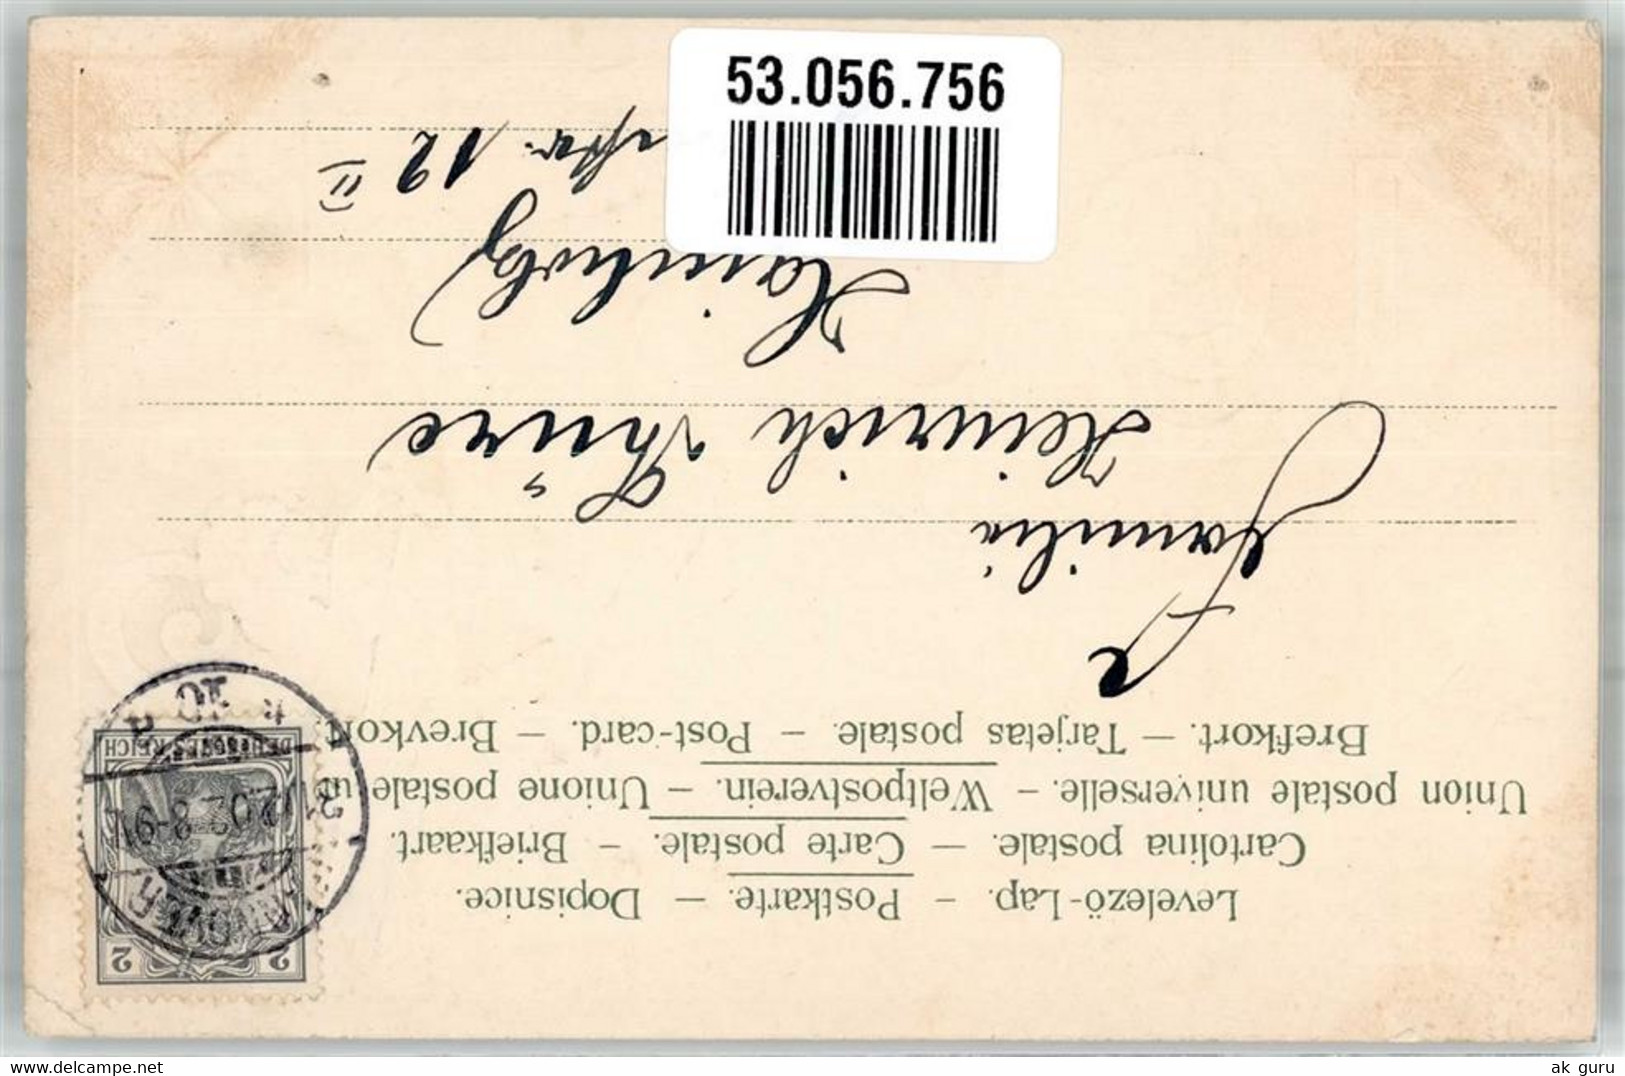 53.056.756
Levelező-Lap. – Postkarte. – Dopisnice.
Cartolina postale. – Carte postale. – Briefkaart.
Union postale universelle. – Weltpostverein. – Unione postale u
Brefkort. – Tarjetas postale. – Post-card. – Brevkort.
2 2
DEUTSCHES REICH
HANNOVER
31.12.02. 8-9V.
10
Familie
Heinrich Thüre
12 II
ak guru